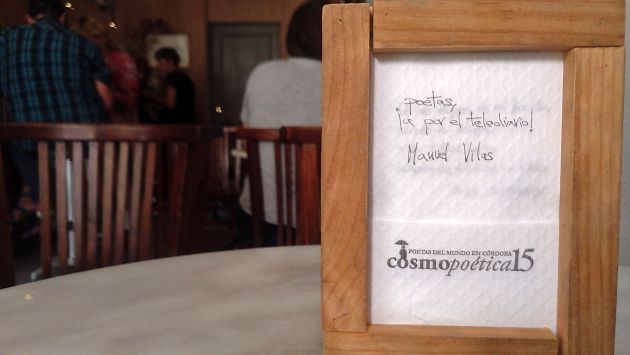 poetas,
¡a por el telediario!
Manuel Vilas
POETAS DEL MUNDO EN CÓRDOBA
cosmopoética15